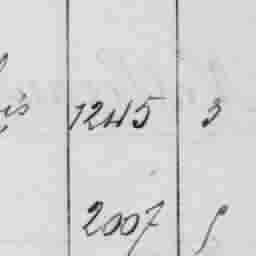 is 1245 3
2007